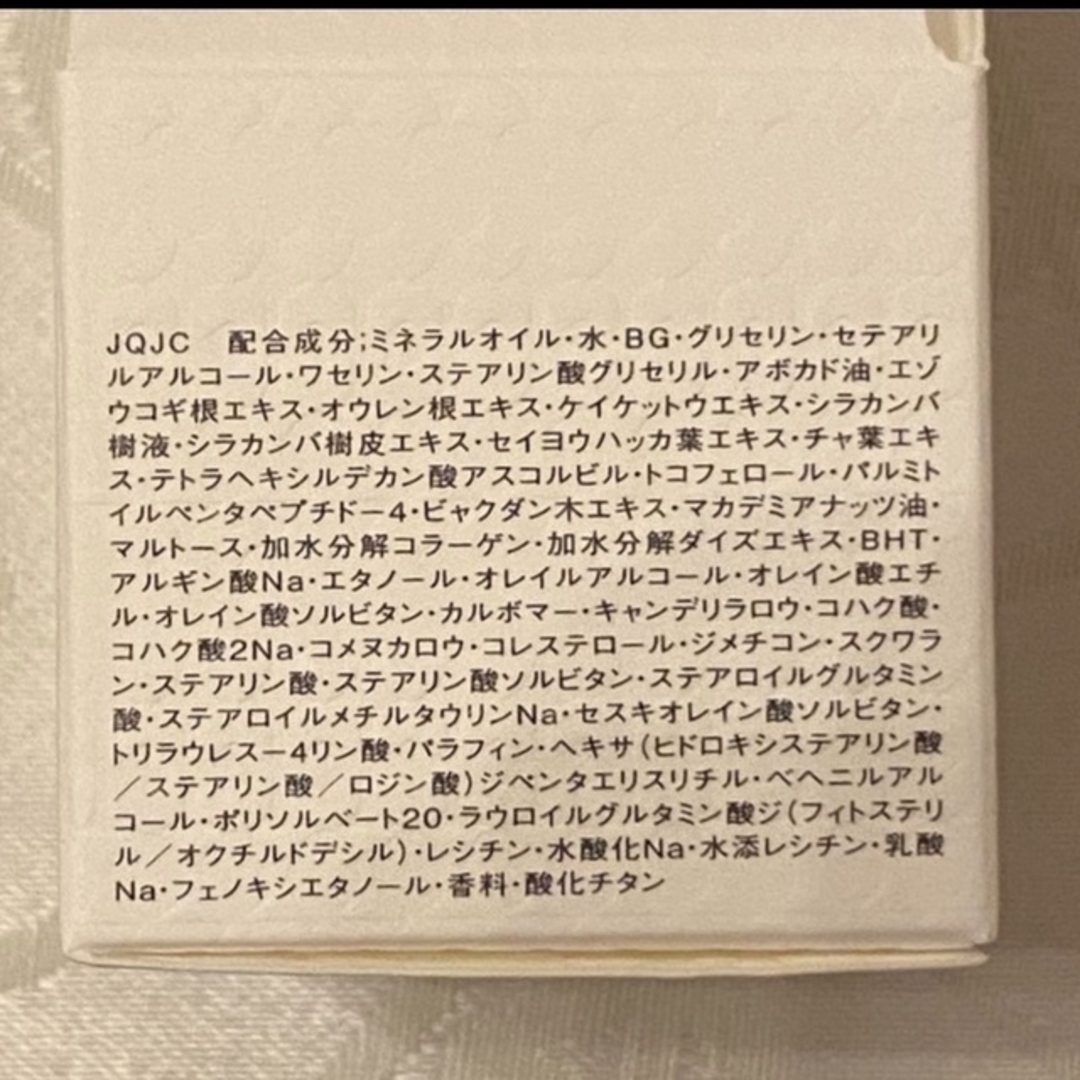 JQJC　配合成分;ミネラルオイル・水・BG・グリセリン・セテアリ
ルアルコール・ワセリン・ステアリン酸グリセリル・アボカド油・エゾ
ウコギ根エキス・オウレン根エキス・ケイケットウエキス・シラカンバ
樹液・シラカンバ樹皮エキス・セイヨウハッカ葉エキス・チャ葉エキ
ス・テトラヘキシルデカン酸アスコルビル・トコフェロール・パルミト
イルペンタペプチドー4・ビャクダン木エキス・マカデミアナッツ油・
マルトース・加水分解コラーゲン・加水分解ダイズエキス・BHT・
アルギン酸Na・エタノール・オレイルアルコール・オレイン酸エチ
ル・オレイン酸ソルビタン・カルボマー・キャンデリラロウ・コハク酸・
コハク酸2Na・コメヌカロウ・コレステロール・ジメチコン・スクワラ
ン・ステアリン酸・ステアリン酸ソルビタン・ステアロイルグルタミン
酸・ステアロイルメチルタウリンNa・セスキオレイン酸ソルビタン・
トリラウレスー4リン酸・パラフィン・ヘキサ(ヒドロキシステアリン酸
／ステアリン酸／ロジン酸)ジペンタエリスリチル・ベヘニルアル
コール・ポリソルベート20・ラウロイルグルタミン酸ジ(フィトステリ
ル／オクチルドデシル)・レシチン・水酸化Na・水添レシチン・乳酸
Na・フェノキシエタノール・香料・酸化チタン